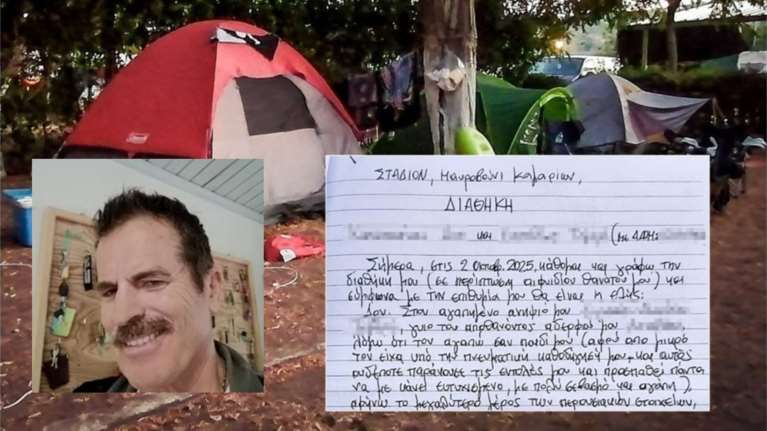 Coleman
ΣΤΑΔΙΟΝ, Μαυροβούνι Καμαρίων,
ΔΙΑΘΗΚΗ
και (με ΑΦΜ:
Σήμερα, στις 2 Οκτωβ. 2025, κάθομαι και γράφω την
διαθήκη μου (σε περίπτωση αιφνιδίου θανάτου μου) και
σύμφωνα με την επιθυμία μου θα είναι η εξής:
1ον. Στον αγαπημένο ανηψιό μου
, γυιο του αποθανόντος αδερφού μου
λόγω ότι τον αγαπώ σαν παιδί μου (αφού από μικρό
τον είχα υπό την πνευματική καθοδήγησή μου, και αυτός
ουδέποτε παράκουσε τις εντολές μου και προσπαθεί πάντα
να με κάνει ευτυχισμένο, με πολύ σεβασμό και αγάπη),
αφήνω το μεγαλύτερο μέρος των περιουσιακών στοιχείων,